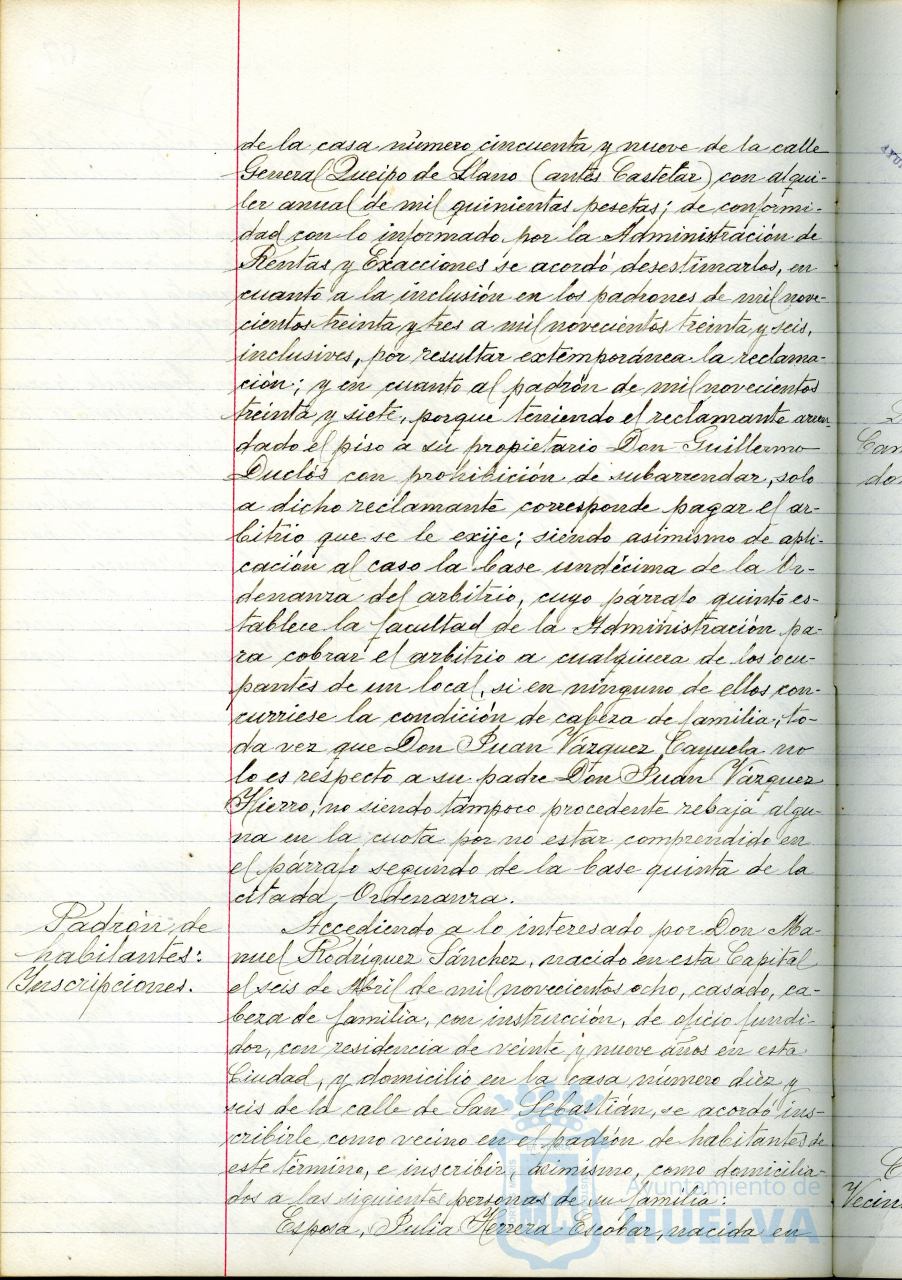 de la casa número cincuenta y nueve de la calle
General Queipo de Llano (antes Castelar) con alqui-
ler anual de mil quinientas pesetas; de conformi-
dad con lo informado por la Administración de
Rentas y Exacciones se acordó desestimarlos, en
cuanto a la inclusión en los padrones de mil nove-
cientos treinta y tres a mil novecientos treinta y seis,
inclusives, por resultar extemporánea la reclama-
ción; y en cuanto al padrón de mil novecientos
treinta y siete, porque teniendo el reclamante arren-
dado el piso a su propietario Don Guillermo
Duclós con prohibición de subarrendar, solo
a dicho reclamante corresponde pagar el ar-
bitrio que se le exije; siendo asimismo de apli-
cación al caso la base undécima de la Or-
denanza del arbitrio, cuyo párrafo quinto es-
tablece la facultad de la Administración pa-
ra cobrar el arbitrio a cualquiera de los ocu-
pantes de un local, si en ninguno de ellos con-
curriese la condición de cabeza de familia; to-
da vez que Don Juan Vázquez Cayuela no
lo es respecto a su padre Don Juan Vázquez
Hierro, no siendo tampoco procedente rebaja algu-
na en la cuota por no estar comprendido en
el párrafo segundo de la base quinta de la
citada Ordenanza.
Padrón de
habitantes:
Inscripciones.
Accediendo a lo interesado por Don Ma-
nuel Rodríguez Sánchez, nacido en esta Capital
el seis de Abril de mil novecientos ocho, casado, ca-
beza de familia, con instrucción, de oficio fundi-
dor, con residencia de veinte y nueve años en esta
Ciudad, y domicilio en la casa número diez y
seis de la calle de San Sebastián, se acordó ins-
cribirle como vecino en el padrón de habitantes de
este término, e inscribir, asimismo, como domicilia-
dos a las siguientes personas de su familia:
Esposa, Julia Herrera Escobar, nacida en
Ayuntamiento de
HUELVA
Vecin